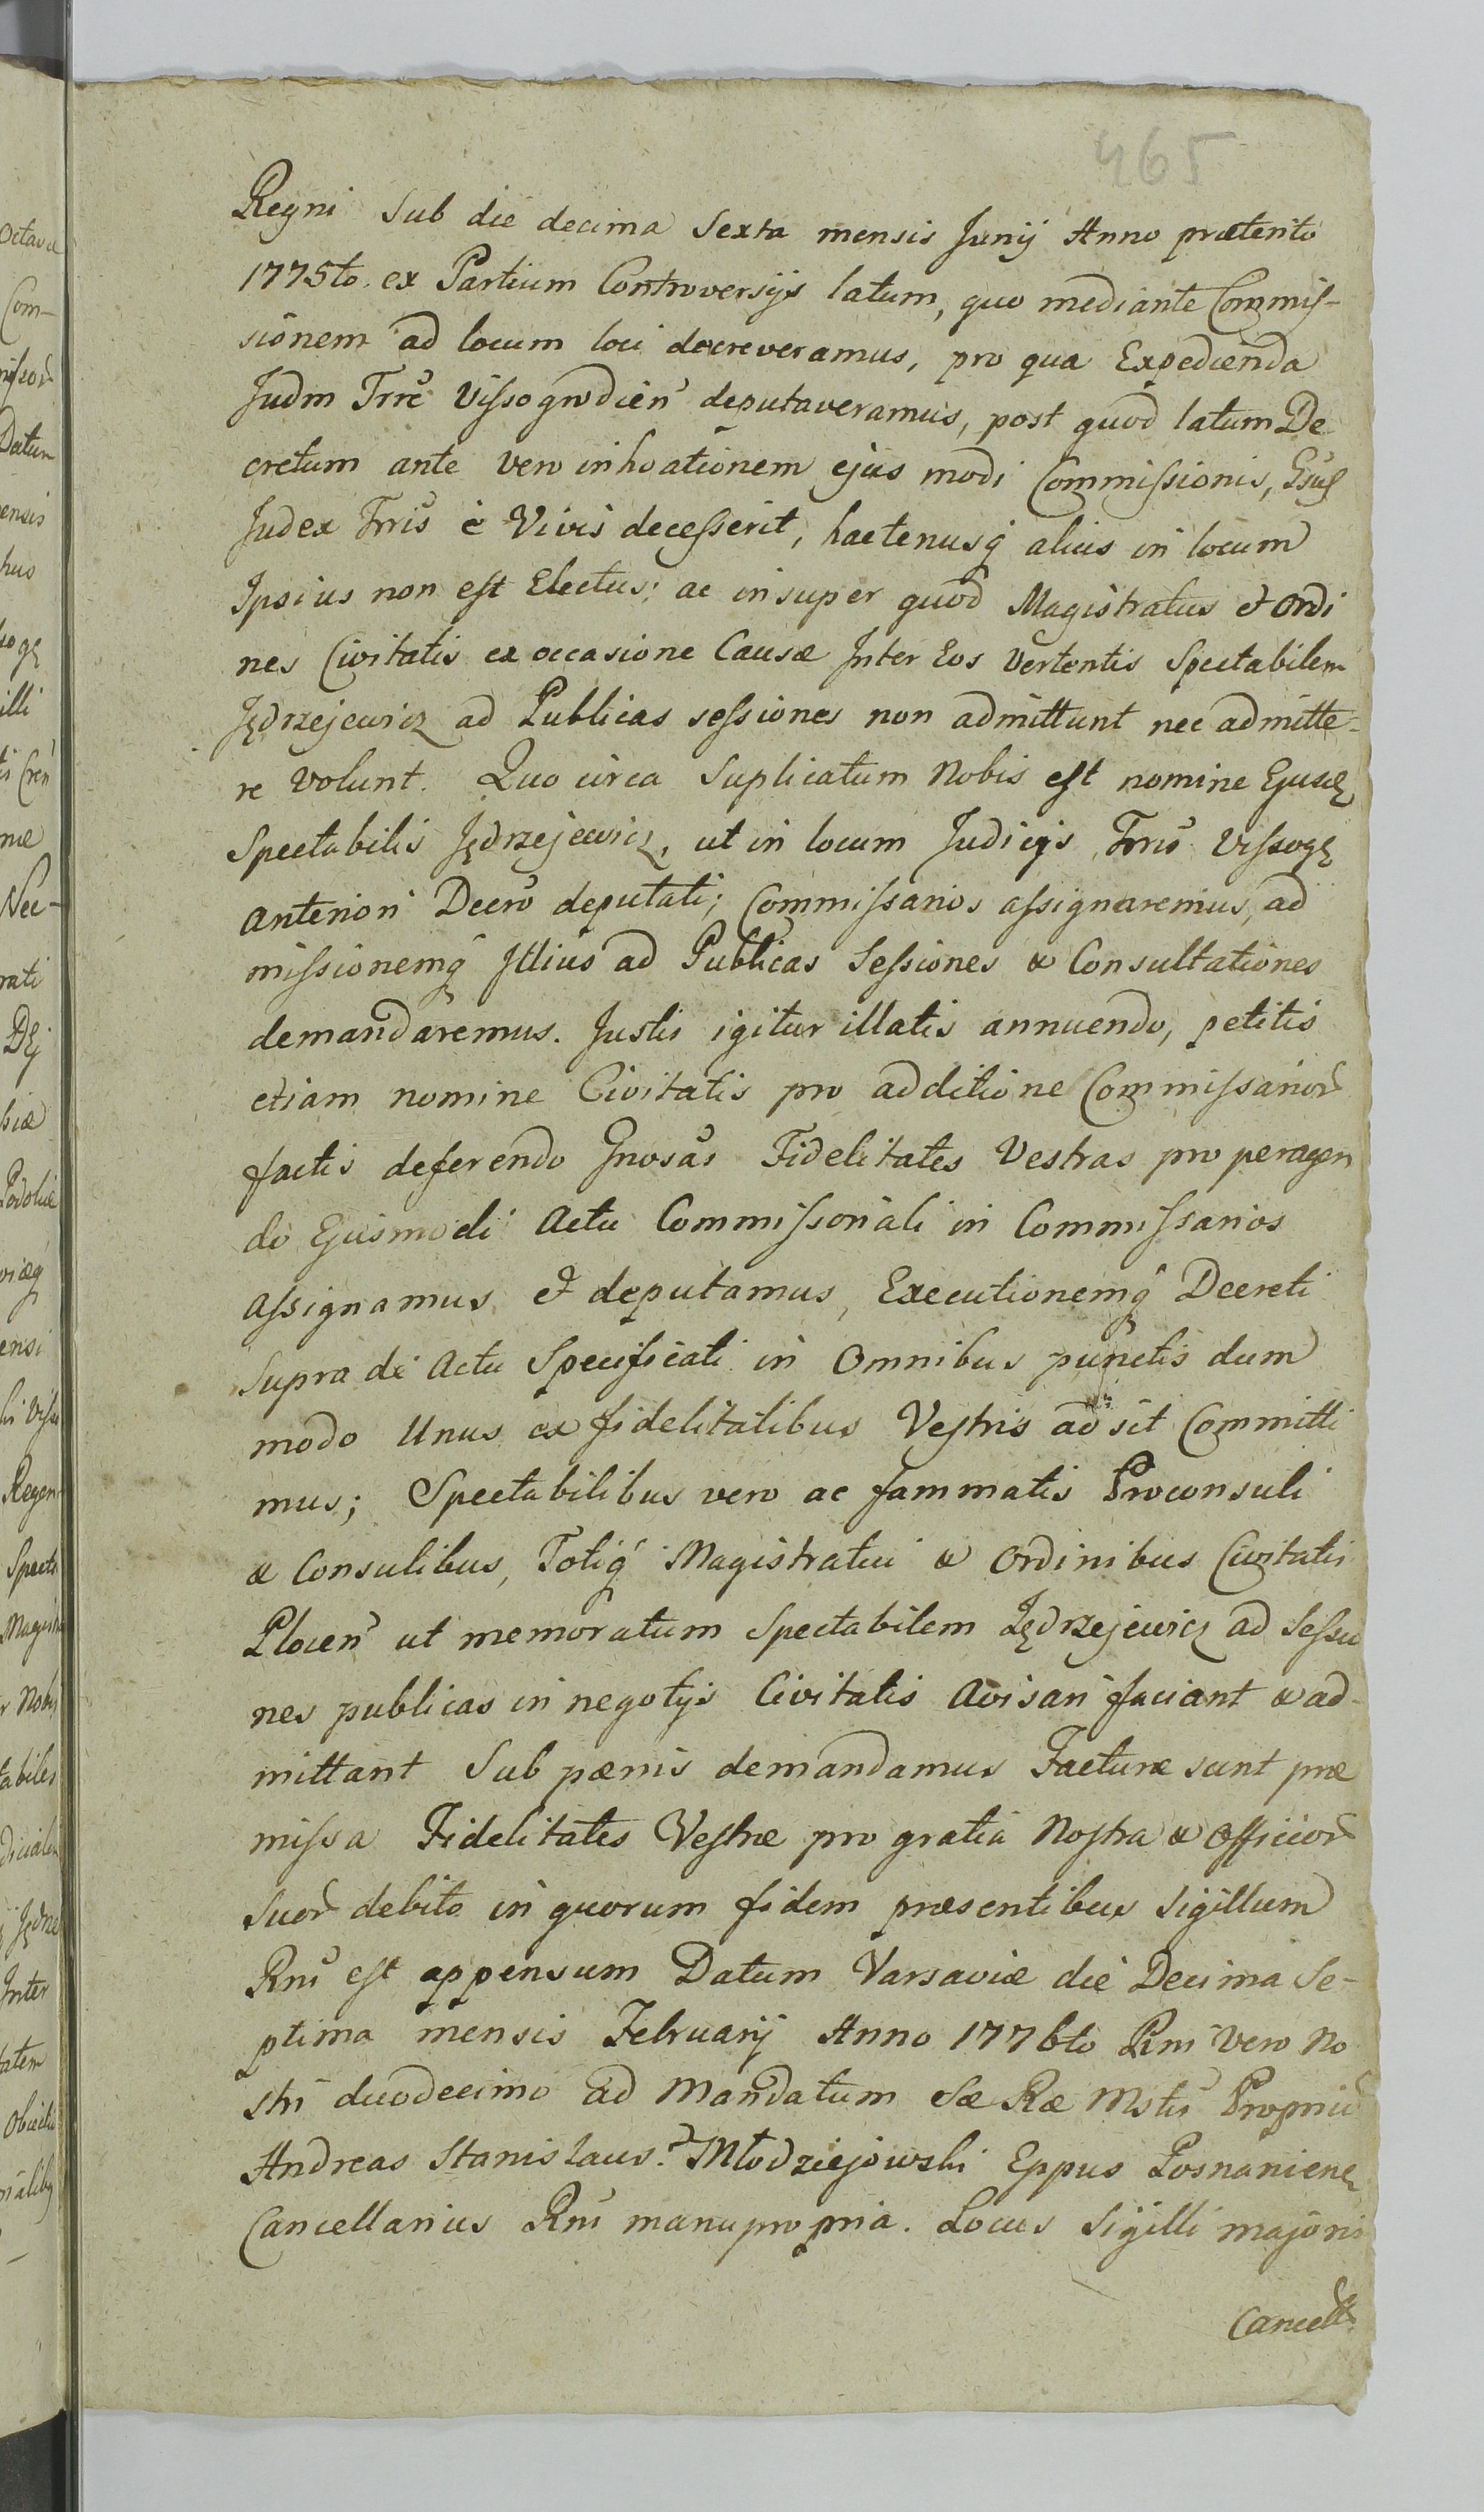 465
Regni Sub die decima Sexta mensis Junij Anno præterito
1775to. ex Partium Controversijs latum, quo mediante Commis-
sionem ad locum loci decreveramus, pro qua Expedienda
Judm Trre Vissogrodien deputaveramus, post quod latum De
cretum ante vero inhoationem ejus modi Commissionis, Gsus
Judex Trris è Vivis decesserit, hactenusq alius in locum
Ipsius non est Electus; ac insuper quod Magistratus et Ordi
nes Civitatis ex occasione Causæ Inter Eos Vertentis Spectabilem
Jędrzejewicz ad Publicas sessiones non admittunt nec admitte-
re Volunt. Quo circa Suplicatum Nobis est nomine Ejusd
Spectabilis Jędrzejewicz, ut in locum Judicijs Trris Vissog
anteriori Decro deputati; Commissarios assignaremus, ad
missionemq Illius ad Publicas Sessiones & Consultationes
demandaremus. Justis igitur illatis annuendo, petitis
etiam nomine Civitatis pro additione Commissarior
factis deferendo Gnosas Fidelitates Vestras pro peragen
do Ejusmodi Actu Commissoriali in Commissarios
assignamus & deputamus, Executionemq Decreti
Supra de Actu Specificati in Omnibus punctis dum
modo Unus ex fidelitatibus Vestris ad sit Committi
mus; Spectabilibus vero ac fammatis Proconsuli
& Consulibus, Totiq Magistratui & Ordinibus Civitatis
Plocen ut memoratum Spectabilem Jędrzejewicz ad Sessio
nes publicas in negotijs Civitatis Avisari faciant & ad-
mittant Sub pænis demandamus Facturæ sunt præ
missa Fidelitates Vestræ pro gratia Nostra & Officior
Suor debito in quorum fidem præsentibus Sigillum
Rni est appensum Datum Varsaviæ die Decima Se-
ptima mensis Februarij Anno 1776to Rni Vero No
stri duodecimo Ad Mandatum Sæ Ræ Mstis Proprium
Andreas Stanislaus Młodziejowski Eppus Posnaniens
Cancellarius Rni manu propria. Locus Sigilli majoris
Cancell